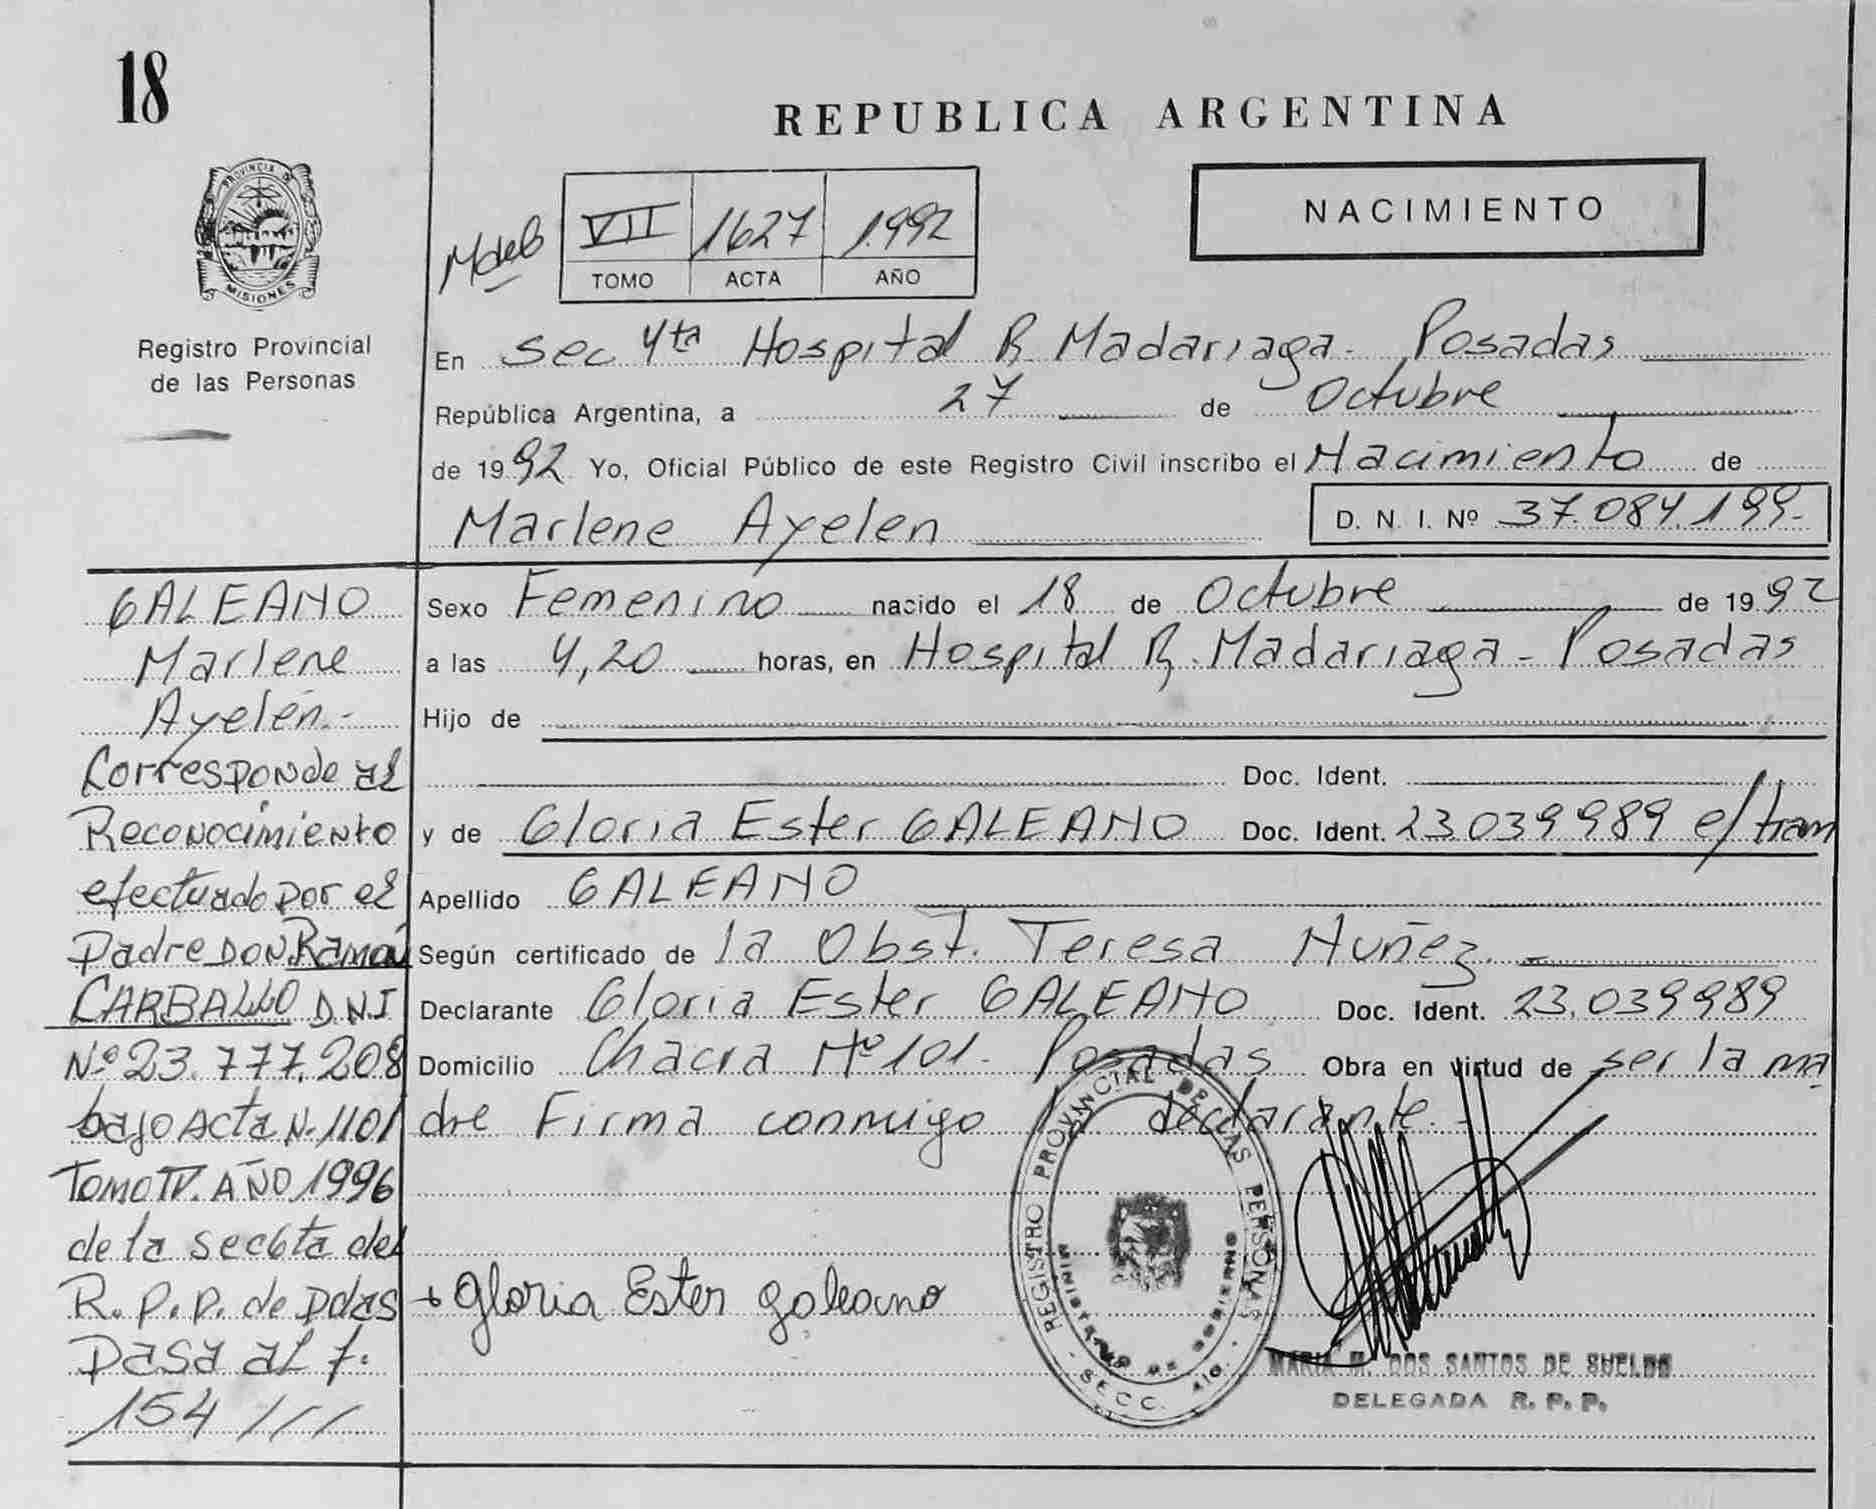 18
REPUBLICA ARGENTINA
PROVINCIA DE
MISIONES
Registro Provincial
de las Personas
VII 1627 1.992
TOMO ACTA AÑO
NACIMIENTO
En Sec 4ta Hospital R Madariaga - Posadas
República Argentina, a 27 de Octubre
de 1992 Yo, Oficial Público de este Registro Civil inscribo el Nacimiento de
Marlene Ayelen D. N. I. Nº 37.084.199-
GALEANO
Marlene
Ayelén.-
Corresponde al
Reconocimiento
efectuado por el
Padre DON Ramón
CARBALLO DNI
Nº 23.777.208
bajo Acta N. 1101
Tomo IV. AÑO 1996
de la sec 6ta del
R. P. P. de Pdas
Pasa al f.
154 ///
Sexo Femenino nacido el 18 de Octubre de 1992
a las 4,20 horas, en Hospital R. Madariaga - Posadas
Hijo de
Doc. Ident.
y de Gloria Ester GALEANO Doc. Ident. 23.039989 e/tram
Apellido GALEANO
Según certificado de la Obst. Teresa Nuñez.-
Declarante Gloria Ester GALEANO Doc. Ident. 23.039989
Domicilio Chacra Nº 101. Posadas Obra en virtud de ser la ma
dre Firma conmigo la declarante.-
+ Gloria Ester galeano
REGISTRO PROVINCIAL DE LAS PERSONAS
MINISTERIO DE GOBIERNO
SECC. 4ta.
MARIA M. DOS SANTOS DE SUELDO
DELEGADA R. P. P.